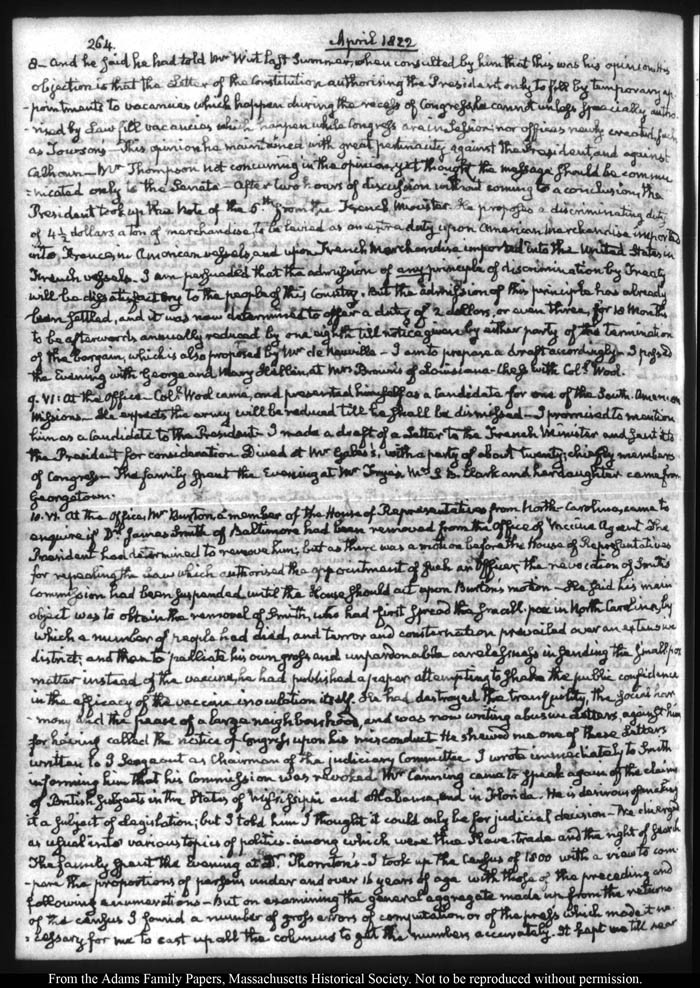 264.
April 1822
8— and he said he had told Mr Wirt last Summer, when consulted by him that this was his opinion. His
objection is that the Letter of the Constitution authorising the President only to fill by temporary ap-
-pointments to vacancies which happen during the recess of Congress he cannot unless specially autho-
-rised by Law fill vacancies which happen while Congress are in Session; nor offices newly created, such
as Towson's— This opinion he maintained with great pertinacity against the President, and against
Calhoun— Mr Thompson not concurring in the opinion, yet thought the message should be commu-
=nicated only to the Senate— After two hours of discussion without coming to a conclusion, the
President took up the note of the 6th from the French Minister. He proposes a discriminating duty
of 4½ dollars a ton of merchandise, to be levied as an extra duty upon American Merchandise imported
into France in American vessels and upon French Merchandise imported into the United States in
French vessels. I am persuaded that the admission of any principle of discrimination by Treaty
will be dissatisfactory to the people of this Country. But the admission of this principle has already
been settled, and it was now determined to offer a duty of 2 dollars, or even three, for 18 Months
to be afterwards annually reduced by one eighth till notice given by either party of the termination
of the bargain, which is also proposed by Mr de Neuville— I am to prepare a draft accordingly— I passed
the Evening with George and Mary Hellen, at Mrs Brown's of Louisiana— Chess with Coll. Wool.
9. VI: At the Office— Coll. Wool came, and presented himself as a Candidate for one of the South-American
Missions— He expects the army will be reduced till he shall be dismissed— I promised to mention
him as a Candidate to the President— I made a draft of a Letter to the French Minister and sent it to
the President for consideration. Dined at Mr Gales's, with a party of about twenty, chiefly members
of Congress— The family spent the Evening at Mr Frye's. Mrs S. B. Clark and her daughter came from
Georgetown.
10. VI. At the Office, Mr Burton a member of the House of Representatives from North-Carolina, came to
enquire if Dr. James Smith of Baltimore had been removed from the Office of Vaccine Agent. The
President had determined to remove him; but as there was a motion before the House of Representatives
for repealing the Law which authorised the appointment of such an Officer, the revocation of Smith's
Commission had been suspended, until the House should act upon Burton's motion— He said his main
object was to obtain the removal of Smith, who had first spread the small-pox in North Carolina, by
which a number of people had died, and terror and consternation prevailed over an extensive
district; and then to palliate his own gross and unpardonable carelessness in sending the small pox
matter instead of the vaccine, he had published a paper attempting to shake the public confidence
in the efficacy of the vaccine inoculation itself. He had destroyed the tranquility, the social har-
-mony and the peace of a large neighbourhood, and was now writing abusive Letters against him
for having called the notice of Congress upon his misconduct. He shewed me one of these Letters
written to J Sergeant as Chairman of the judiciary Committee. I wrote immediately to Smith
informing him that his Commission was revoked. Mr Canning came to speak again of the claims
of British subjects in the States of Mississippi and Alabama, and in Florida. He is desirous of making
it a subject of Legislation; but I told him I thought it could only be for judicial decision— We diverged
as usual into various topics of politics— among which were the Slave-trade and the right of search
The family spent the Evening at Dr. Thornton's— I took up the Census of 1800 with a view to com-
-pare the proportions of persons under and over 16 years of age with those of the preceding and
following enumerations— But on examining the general aggregate made up from the returns
of the census I found a number of gross errors of computation or of the press which made it ne-
=cessary for me to cast up all the columns to get the numbers accurately. It kept me till near
From the Adams Family Papers, Massachusetts Historical Society. Not to be reproduced without permission.